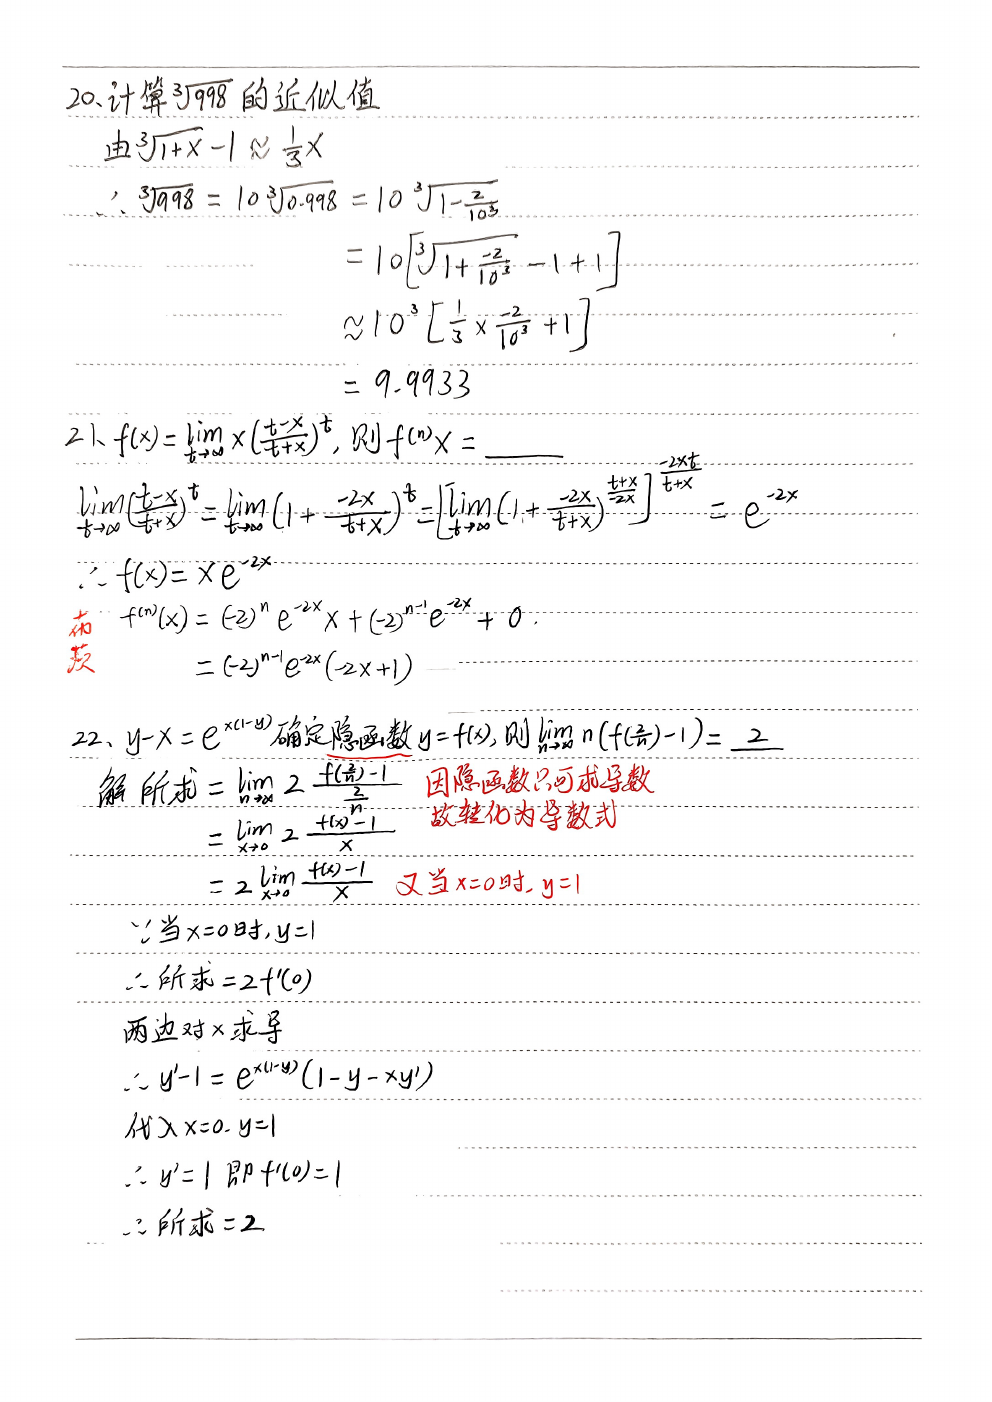 20、计算∛998 的近似值
由 ∛(1+x) -1 ≈ 1/3 x
∴ ∛998 = 10∛0.998 = 10 ∛(1-2/10³)
= 10[∛(1+ -2/10³) -1+1]
≈10³ [1/3 × -2/10³ +1]
= 9.9933
21、f(x)= lim t→∞ x((t-x)/(t+x))^t, 则 f^(n) x = ____
lim t→∞ ((t-x)/(t+x))^t = lim t→∞ (1+ -2x/(t+x))^t = [lim t→∞ (1+ -2x/(t+x))^((t+x)/-2x)]^(-2xt/(t+x)) = e^(-2x)
∴ f(x)= x e^(-2x)
f^(n)(x) = (-2)^n e^(-2x) x + (-2)^(n-1) e^(-2x) + 0.
= (-2)^(n-1) e^(-2x) (-2x+1)
22、y-x = e^(x(1-y)) 确定隐函数 y=f(x), 则 lim n→∞ n(f(2/n)-1) = 2
解 所求 = lim n→∞ 2 (f(2/n)-1)/(2/n) 因隐函数只可求导数
故转化为导数式
= lim x→0 2 (f(x)-1)/x
= 2 lim x→0 (f(x)-1)/x 又当x=0时, y=1
∵当x=0时, y=1
∴所求=2f'(0)
两边对x求导
∴ y'-1 = e^(x(1-y)) (1-y-xy')
代入x=0. y=1
∴ y'=1 即 f'(0)=1
∴ 所求=2